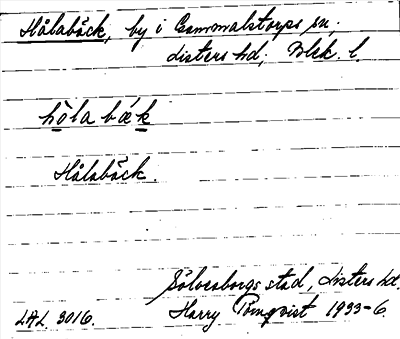 Hålabäck, by i Gammalstorps sn,
Listers hd; Blek. l.
hòla bæ´k
Hålabäck.
Sölvesborgs stad, Listers hd.
LAL 3016. Harry Törnqvist 1933-6.